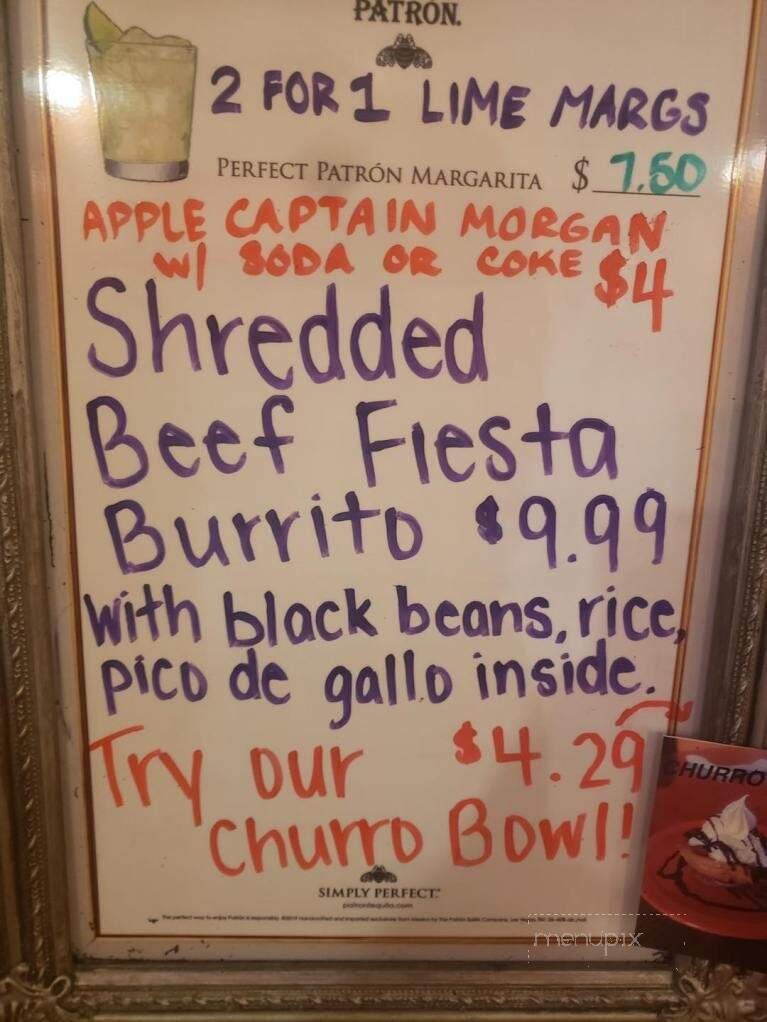 PATRÓN.
2 FOR 1 LIME MARGS
PERFECT PATRÓN MARGARITA $ 7.50
APPLE CAPTAIN MORGAN
W/ SODA OR COKE $4
Shredded
Beef Fiesta
Burrito $9.99
With black beans, rice,
pico de gallo inside.
Try our $4.29
Churro Bowl!
CHURRO
SIMPLY PERFECT.
patrontequila.com
menupix